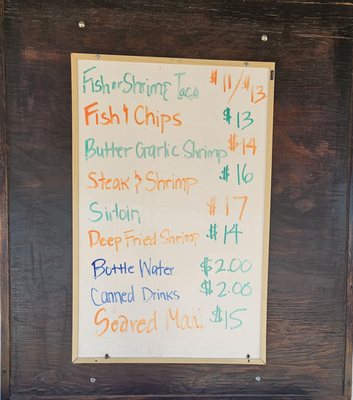 Fish or Shrimp Taco $11/$13
Fish & Chips $13
Butter Garlic Shrimp $14
Steak & Shrimp $16
Sirloin $17
Deep Fried Shrimp $14
Bottle Water $2.00
Canned Drinks $2.00
Seared Mari $15